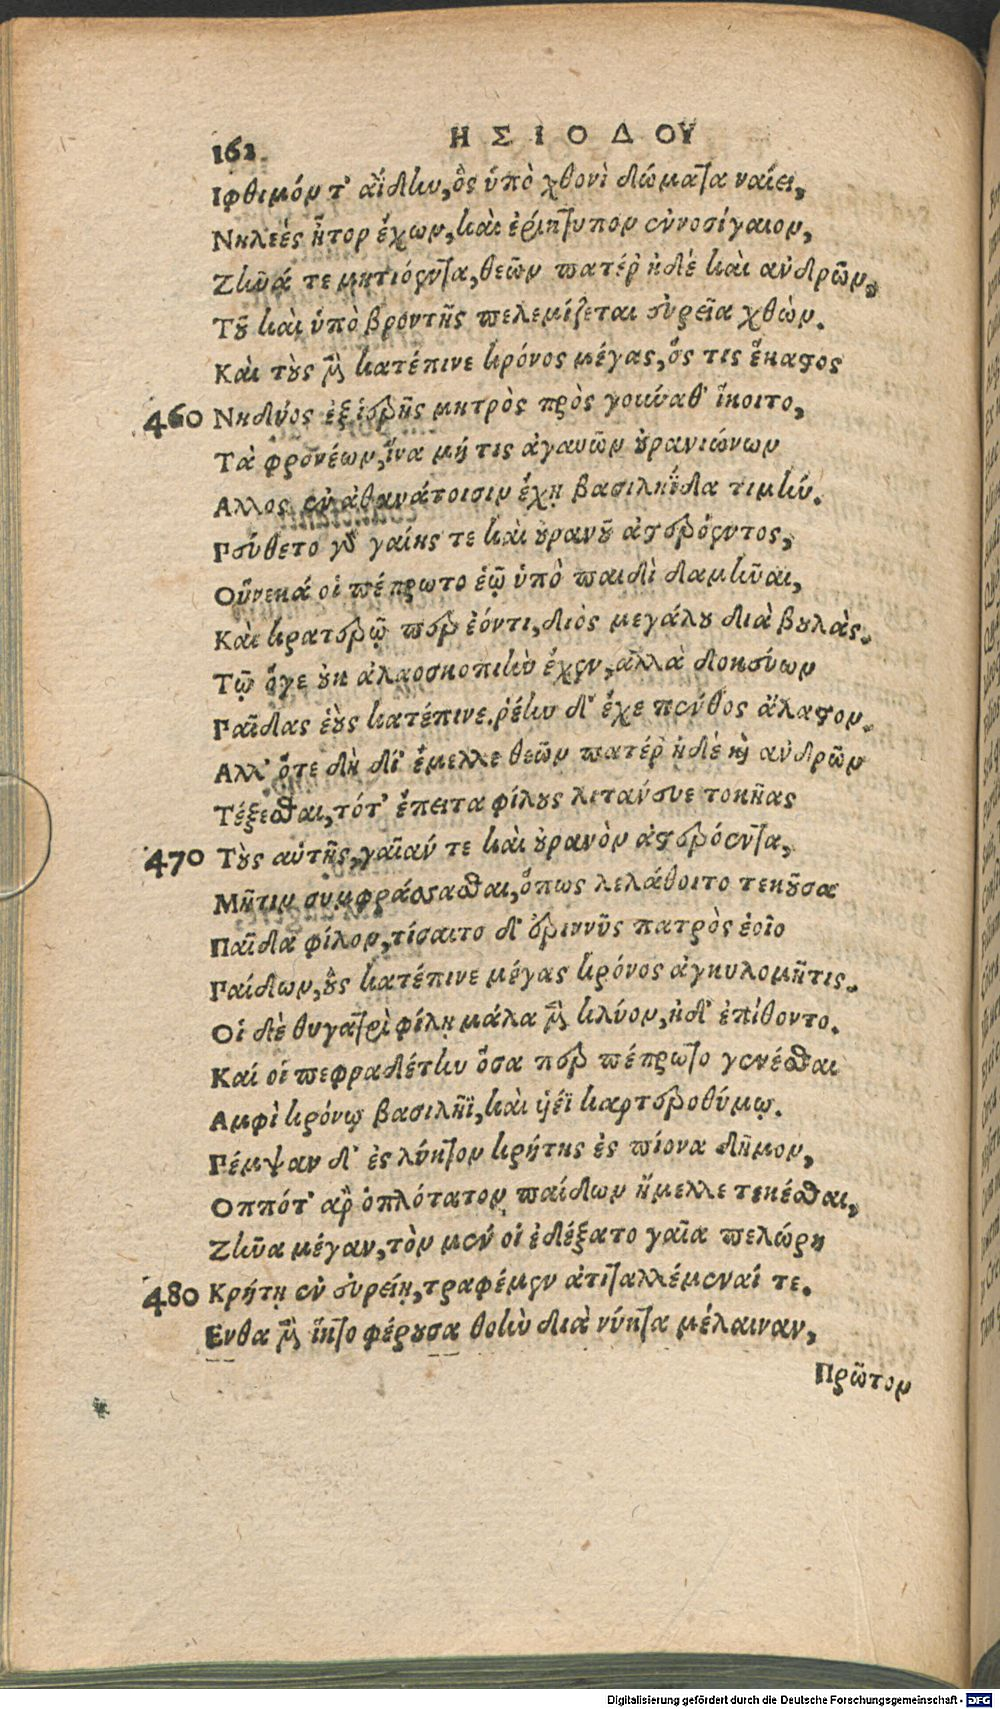 162 ΗΣΙΟΔΟΥ
Ιφθιμόν τ' ἀΐδην, ὃς ὑπὸ χθονὶ δώματα ναίει,
Νηλεές ἦτορ ἔχων, καὶ ἐρίκτυπον ἐννοσίγαιον,
Ζηνά τε μητιόεντα, θεῶν πατέρ ἠδὲ καὶ ἀνδρῶν,
Τοῦ καὶ ὑπὸ βροντῆς πελεμίζεται εὐρεῖα χθὼν.
Καὶ τοὺς μὲν κατέπινε κρόνος μέγας, ὅς τις ἕκαστος
460 Νηδύος ἐξ ἱερῆς μητρὸς πρὸς γούναθ' ἵκοιτο,
Τὰ φρονέων, ἵνα μή τις ἀγαυῶν οὐρανιώνων
Αλλος ἐν ἀθανάτοισιν ἔχῃ βασιληΐδα τιμήν.
Πεύθετο γὰρ γαίης τε καὶ οὐρανοῦ ἀστερόεντος,
Οὕνεκά οἱ πέπρωτο ἑῷ ὑπὸ παιδὶ δαμῆναι,
Καὶ κρατερῷ περ ἐόντι, διὸς μεγάλου διὰ βουλὰς.
Τῷ ὅγε οὐκ ἀλαοσκοπιὴν ἔχεν, ἀλλὰ δοκεύων
Παῖδας ἑοὺς κατέπινε. ῥέην δ' ἔχε πένθος ἄλαστον.
Αλλ' ὅτε δὴ δί' ἔμελλε θεῶν πατέρ ἠδὲ καὶ ἀνδρῶν
Τέξεσθαι, τότ' ἔπειτα φίλους λιτάνευε τοκῆας
470 Τοὺς αὐτῆς, γαῖαν τε καὶ οὐρανὸν ἀστερόεντα,
Μῆτιν συμφράσσασθαι, ὅπως λελάθοιτο τεκοῦσα
Παῖδα φίλον, τίσαιτο δ' ἐριννῦς πατρὸς ἑοῖο
Παίδων, οὓς κατέπινε μέγας κρόνος ἀγκυλομῆτις.
Οἱ δὲ θυγατρὶ φίλῃ μάλα μὲν κλύον, ἠδ' ἐπίθοντο.
Καί οἱ πεφραδέτην ὅσα περ πέπρωτο γενέσθαι
Αμφὶ κρόνῳ βασιλῆϊ, καὶ υἱέϊ καρτεροθύμῳ.
Πέμψαν δ' ἐς λύκτον κρήτης ἐς πίονα δῆμον,
Οππότ' ἂρ ὁπλότατον παίδων ἤμελλε τεκέσθαι,
Ζῆνα μέγαν, τὸν μέν οἱ ἐδέξατο γαῖα πελώρη
480 Κρήτῃ ἐν εὐρείῃ, τραφέμεν ἀτιταλλέμεναί τε.
Ενθα μὲν ἵκτο φέρουσα θοὴν διὰ νύκτα μέλαιναν,
Πρῶτον
Digitalisierung gefördert durch die Deutsche Forschungsgemeinschaft - DFG